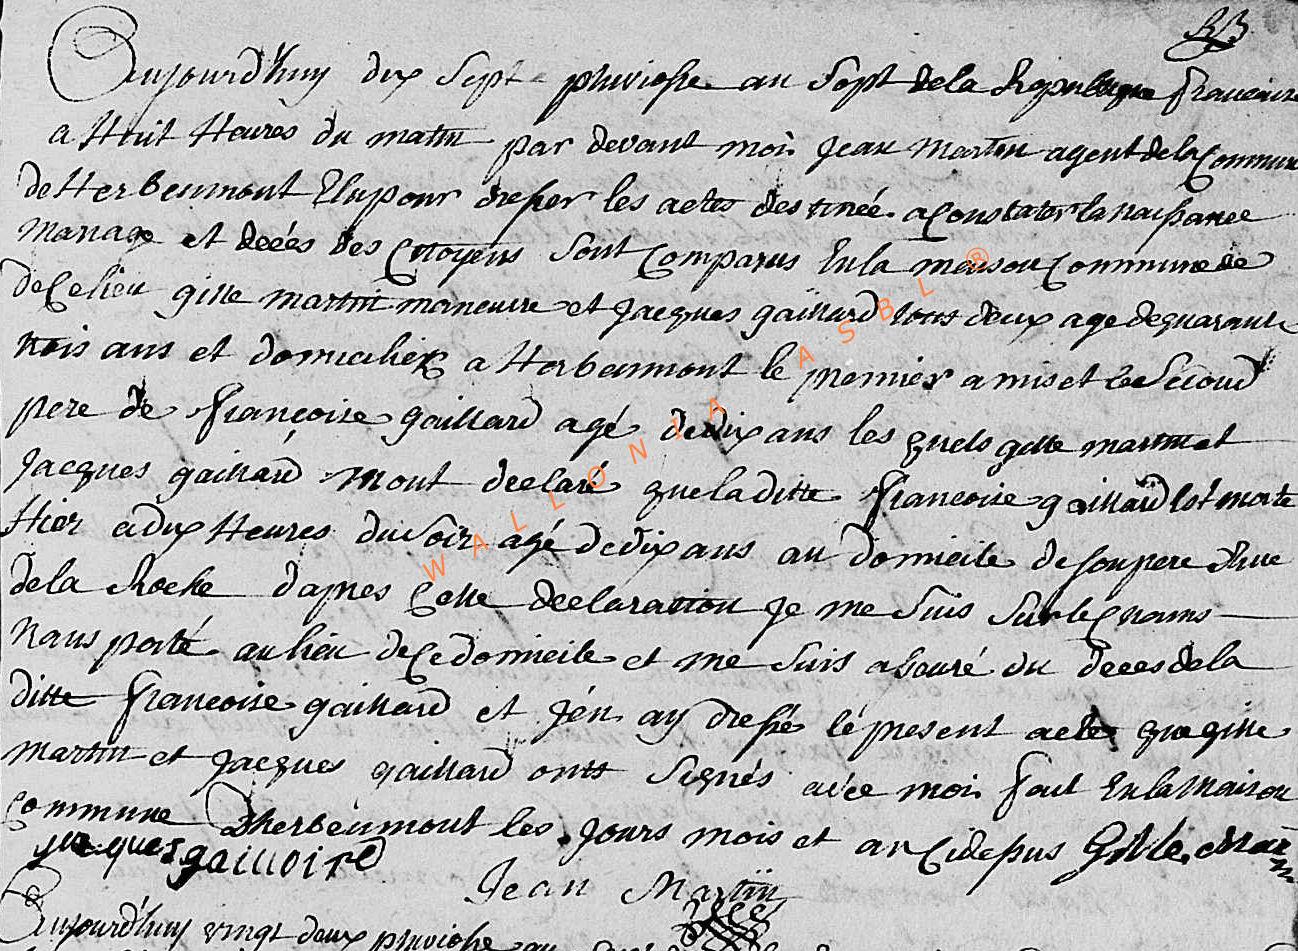 Aujourd'huy dix Sept pluviosse an Sept de la Republique francaise
a Huit Heures du matin par devant moi Jean Martin agent de la Commune
de Herbeumont Elu pour dresser les actes destinée a Constater la naissance
Mariage et décés des Citoyens Sont Comparus En la maison Commune de
de Ce lieu gille martin maneuvre et Jacques gaillard tous deux age de quarante
trois ans et domicilier a Herbeumont le premier amis et le Second
pere de françoise gaillard agé de dix ans les quels gille martin et
Jacques gaillard Mont déclaré que la ditte francoise gaillard Est morte
Hier a dix Heures du Soir agé de dix ans au domicile de son pere Rue
de la Roche d'apres Cette declaration Je me Suis Sur le Chams
transporté au lieu de Ce domicile et me Suis assuré du deces de la
ditte francoise gaillard et J'en ay dressé lé present acte que gille
martin et Jacques gaillard onts Signés avéc moi fait En la Maison
Commune D'herbéumont les Jours mois et an Cidepus Gille Martin
jacques gaillard
Jean Martin
Aujourd'huy vingt deux pluviosse an
WALLONIA ASBL ®